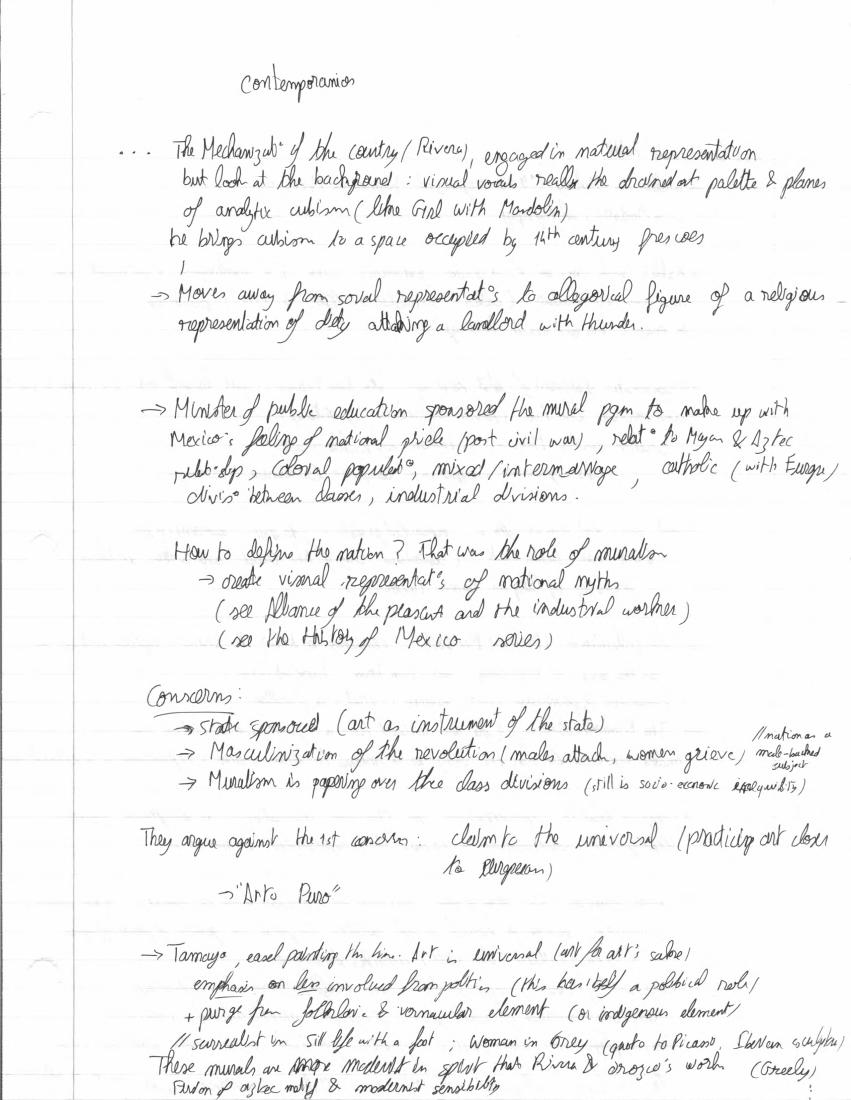 Contemporanios
... The Mechanizat° of the country (Rivera), engaged in natural representation
but look at the background : visual vocab recalls the drained out palette & planes
of analytic cubism (like Girl with Mandolin)
he brings cubism to a space occupied by 14th century frescoes
→ Moves away from social representat°s to allegorical figure of a religious
representation of diety attacking a landlord with thunder.
→ Minister of public education sponsored the mural pgm to make up with
Mexico's feeling of national pride (post civil war), relat° to Mayan & Aztec
relat°ship, colonial populat°, mixed/intermarriage, catholic (with Europe)
divis° between classes, industrial divisions.
How to define the nation? That was the role of muralism
→ create visual representat°s of national myths
(see Alliance of the peasant and the industrial worker)
(see the History of Mexico series)
Concerns:
→ state sponsored (art as instrument of the state)
→ Masculinization of the revolution (males attack, women grieve) //nation as a
male-backed
subject
→ Muralism is papering over the class divisions (still is socio-economic inequality)
They argue against the 1st concern: claim to the universal (practicing art closer
to European)
→ "Arto Puro"
→ Tamayo, easel painting this time. Art is universal (art for art's sake)
emphasis on less involved from politics (this has itself a political role)
+ purge from folkloric & vernacular element (or indigenous element)
// surrealist in Sill life with a foot ; Woman in Grey (quote to Picasso, Iberian sculpture)
These murals are more modernist in spirit that Rivera & Orozco's work (Greely)
Fusion of aztec motif & modernist sensibility